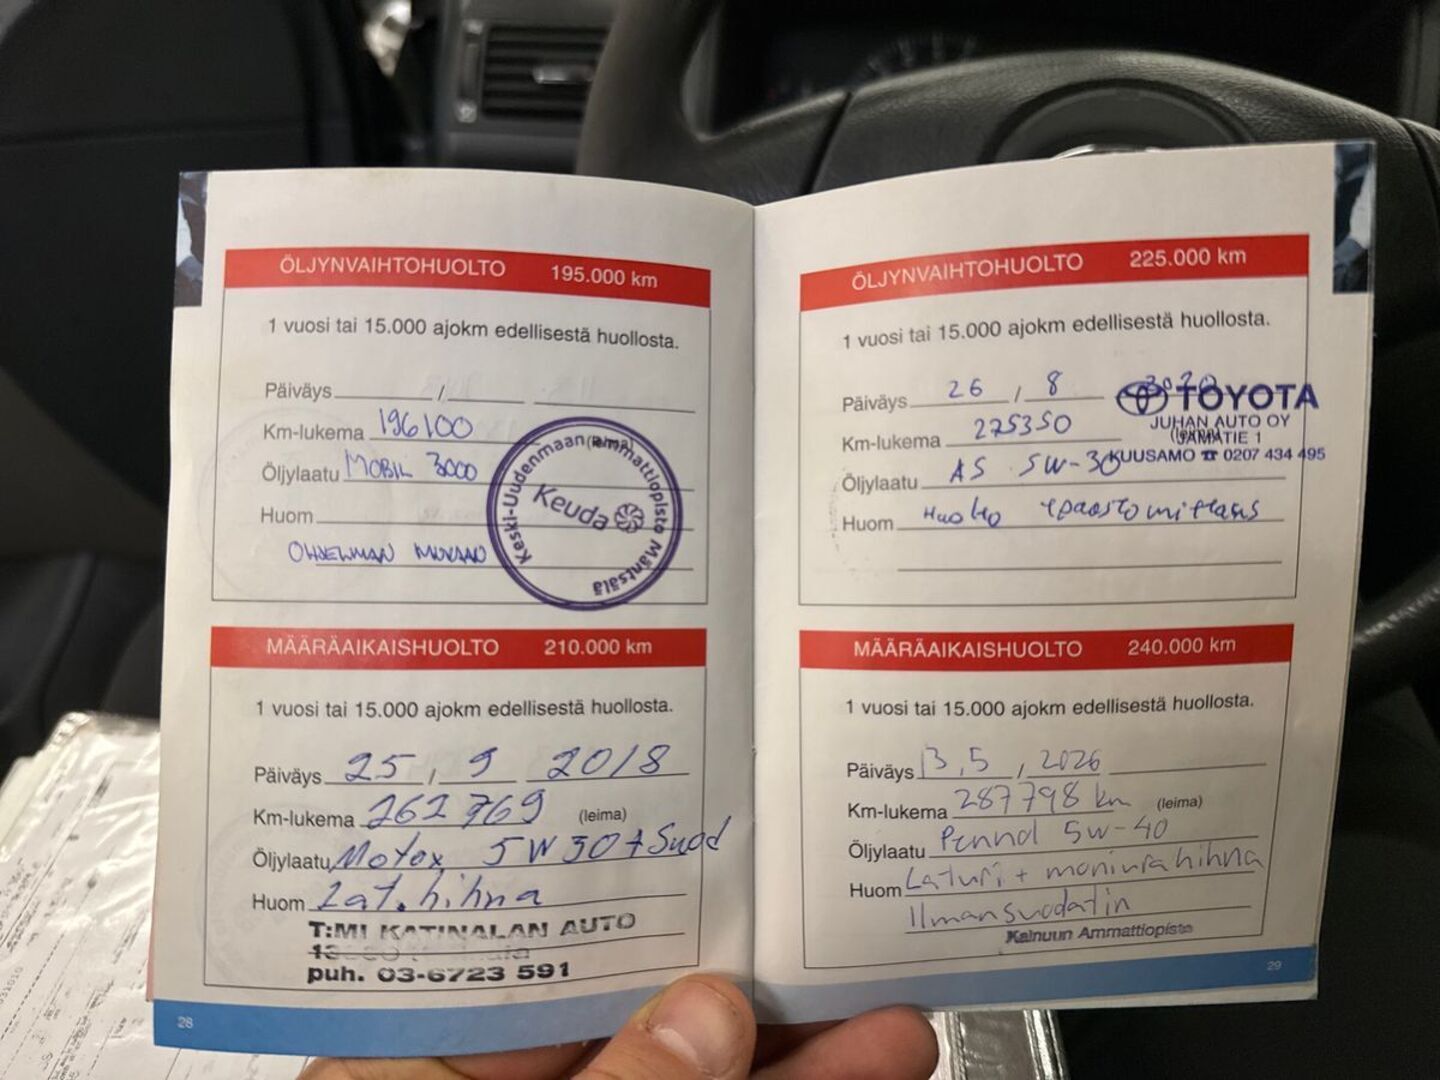 ÖLJYNVAIHTOHUOLTO 195.000 km
1 vuosi tai 15.000 ajokm edellisestä huollosta.
Päiväys / 
Km-lukema 196100 (leima)
Öljylaatu MOBIL 3000
Huom
OHJELMAN MUKAAN
Keski-Uudenmaan ammattiopisto Mäntsälä
Keuda
MÄÄRÄAIKAISHUOLTO 210.000 km
1 vuosi tai 15.000 ajokm edellisestä huollosta.
Päiväys 25 / 9 2018
Km-lukema 262769 (leima)
Öljylaatu Motox 5W30 + Suod
Huom Lat. hihna
T:MI KATINALAN AUTO
puh. 03-6723 591
28
ÖLJYNVAIHTOHUOLTO 225.000 km
1 vuosi tai 15.000 ajokm edellisestä huollosta.
Päiväys 26 / 8 2020
Km-lukema 275350 (leima)
Öljylaatu AS 5W-30
Huom Huolto
TOYOTA
JUHAN AUTO OY
JÄMÄTIE 1
KUUSAMO ☎ 0207 434 495
MÄÄRÄAIKAISHUOLTO 240.000 km
1 vuosi tai 15.000 ajokm edellisestä huollosta.
Päiväys 13.5 / 2026
Km-lukema 287798 km (leima)
Öljylaatu 5w-40
Huom Laturi + moniurahihna
Ilmansuodatin
Kainuun Ammattiopisto
29